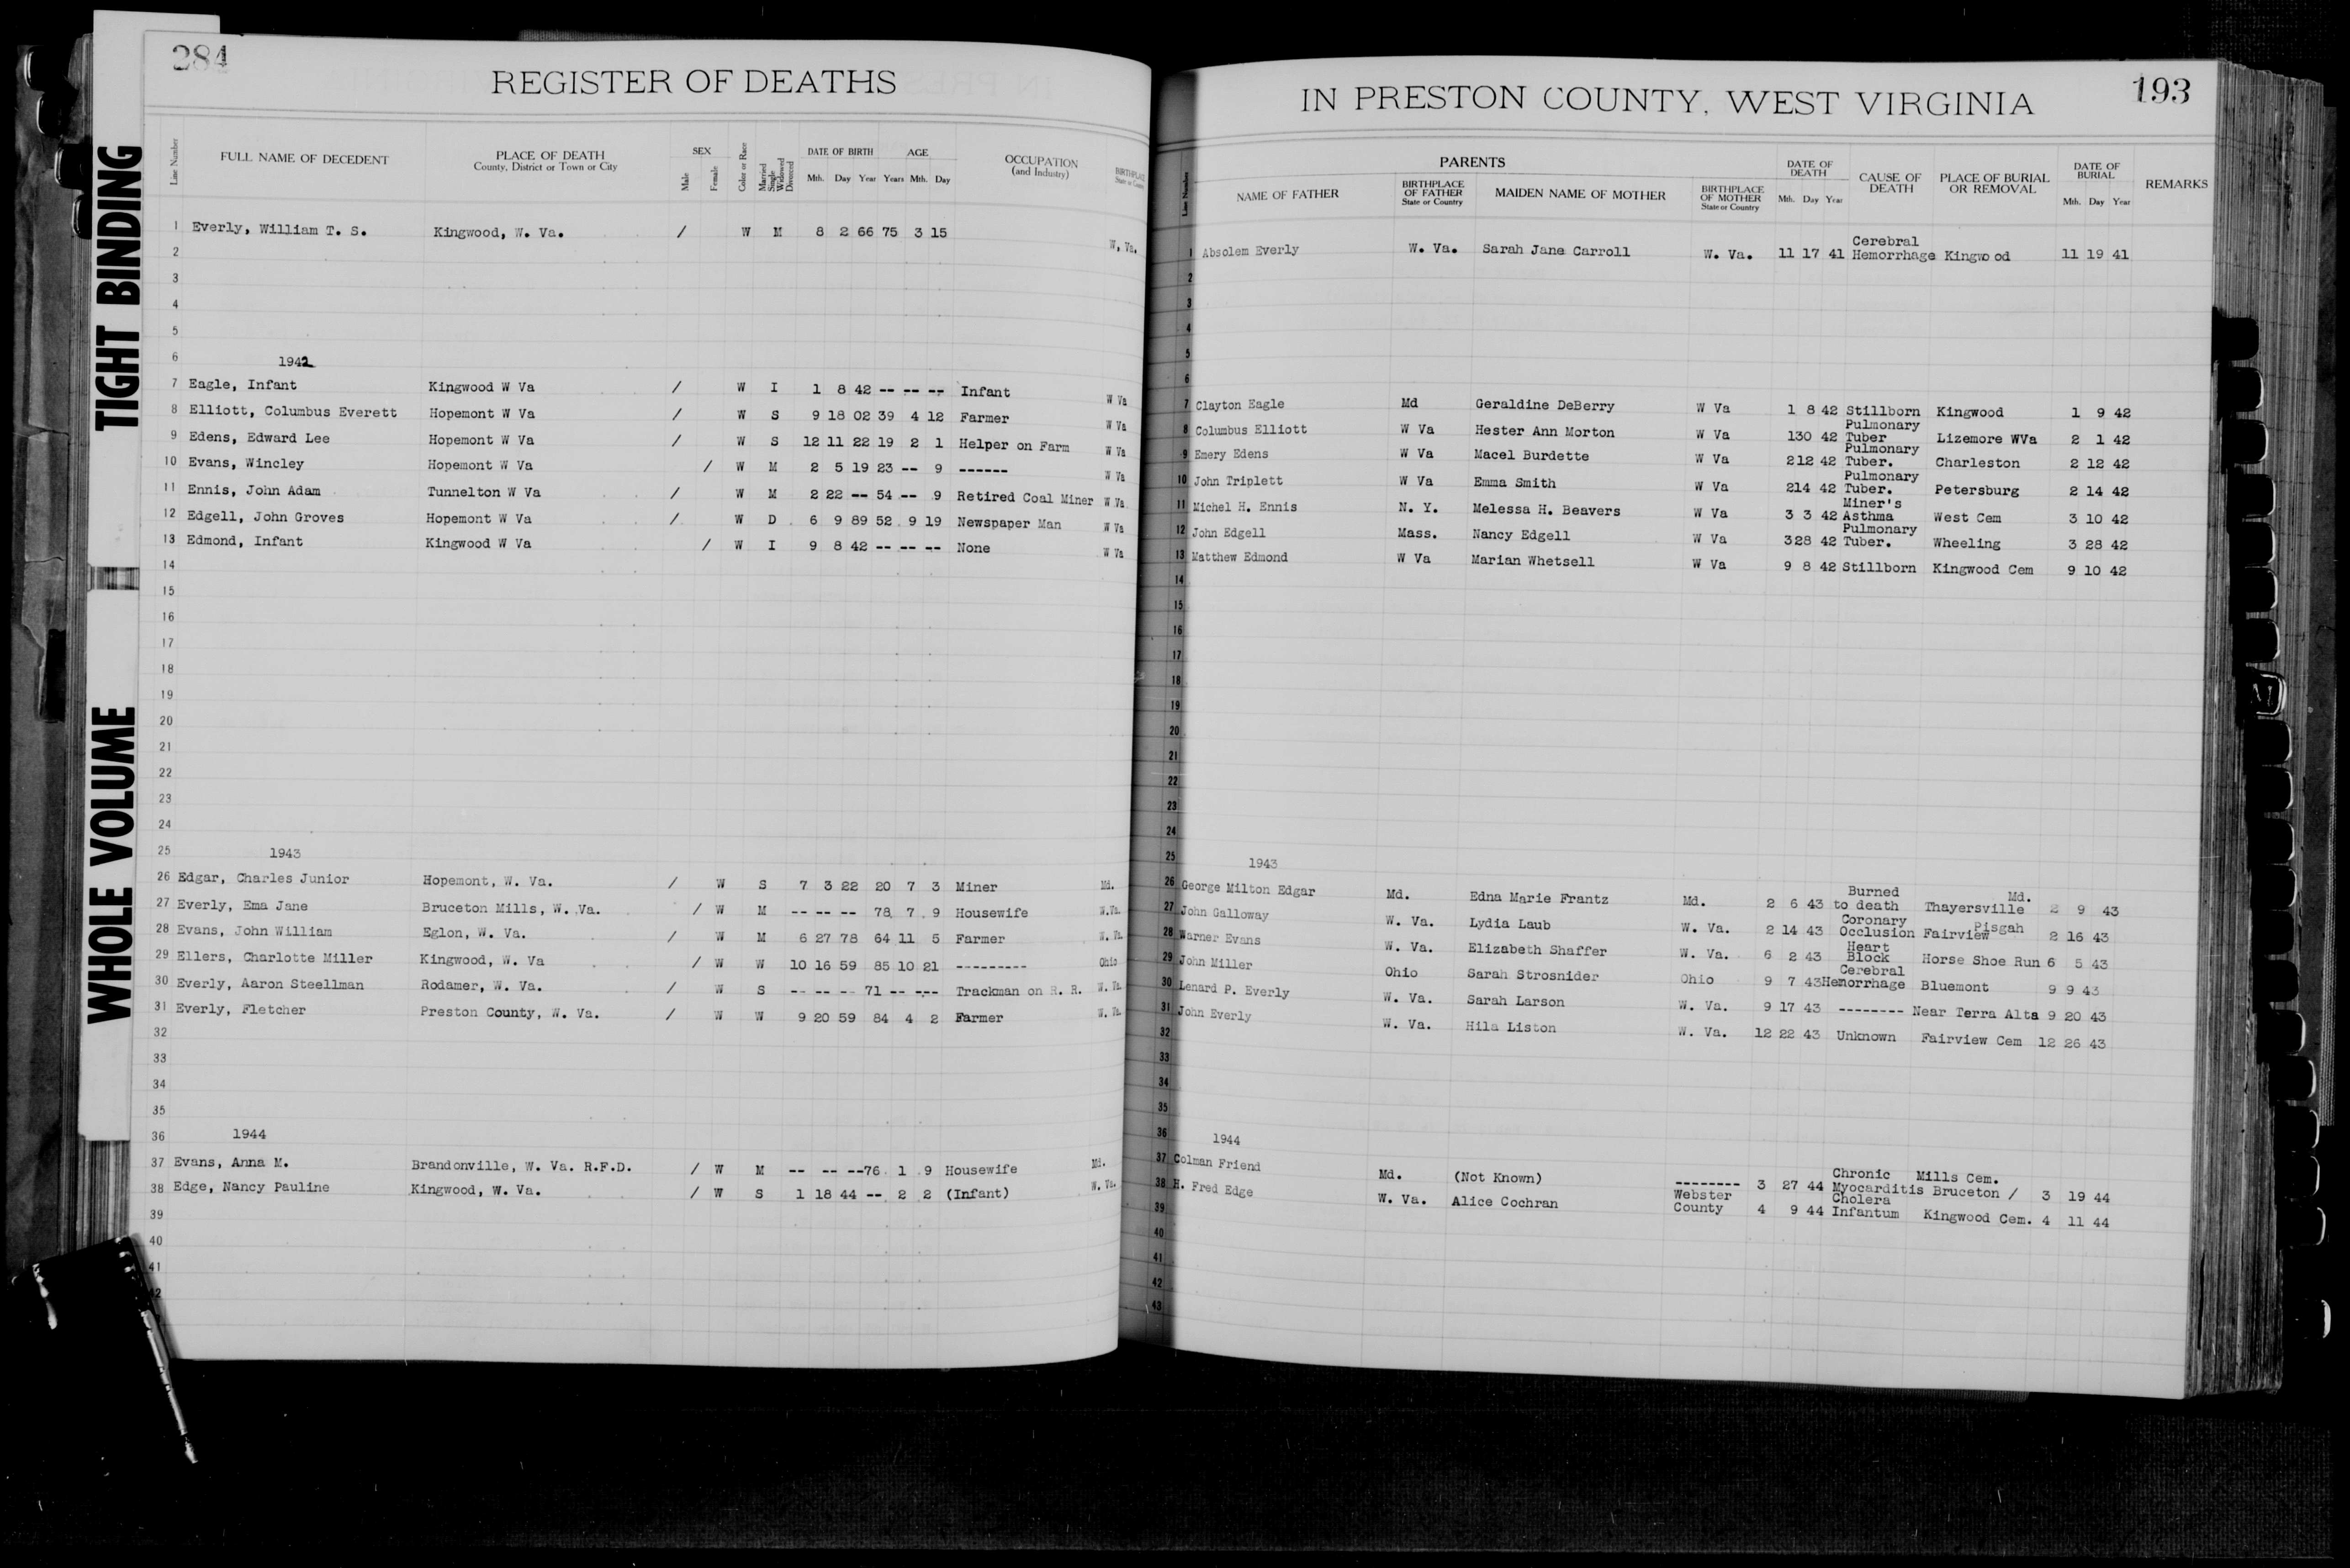 TIGHT BINDING
WHOLE VOLUME
284
REGISTER OF DEATHS
Line Number
FULL NAME OF DECEDENT
PLACE OF DEATH
County, District or Town or City
SEX
Male
Female
Color or Race
Married
Single
Widowed
Divorced
DATE OF BIRTH
Mth. Day Year
AGE
Years Mth. Day
OCCUPATION
(and Industry)
BIRTHPLACE
1 Everly, William T. S. Kingwood, W. Va. / W M 8 2 66 75 3 15 W. Va.
2
3
4
5
6 1942
7 Eagle, Infant Kingwood W Va / W I 1 8 42 -- -- -- Infant W Va
8 Elliott, Columbus Everett Hopemont W Va / W S 9 18 02 39 4 12 Farmer W Va
9 Edens, Edward Lee Hopemont W Va / W S 12 11 22 19 2 1 Helper on Farm W Va
10 Evans, Wincley Hopemont W Va / W M 2 5 19 23 -- 9 ------ W Va
11 Ennis, John Adam Tunnelton W Va / W M 2 22 -- 54 -- 9 Retired Coal Miner W Va
12 Edgell, John Groves Hopemont W Va / W D 6 9 89 52 9 19 Newspaper Man W Va
13 Edmond, Infant Kingwood W Va / W I 9 8 42 -- -- -- None W Va
14
15
16
17
18
19
20
21
22
23
24
25 1943
26 Edgar, Charles Junior Hopemont, W. Va. / W S 7 3 22 20 7 3 Miner Md.
27 Everly, Ema Jane Bruceton Mills, W. Va. / W M -- -- -- 78 7 9 Housewife W.Va.
28 Evans, John William Eglon, W. Va. / W M 6 27 78 64 11 5 Farmer W. Va.
29 Ellers, Charlotte Miller Kingwood, W. Va / W W 10 16 59 85 10 21 --------- Ohio
30 Everly, Aaron Steellman Rodamer, W. Va. / W S -- -- -- 71 -- --- Trackman on R. R. W. Va.
31 Everly, Fletcher Preston County, W. Va. / W W 9 20 59 84 4 2 Farmer W. Va.
32
33
34
35
36 1944
37 Evans, Anna M. Brandonville, W. Va. R.F.D. / W M -- -- --76 1 9 Housewife Md.
38 Edge, Nancy Pauline Kingwood, W. Va. / W S 1 18 44 -- 2 2 (Infant) W. Va.
39
40
41
IN PRESTON COUNTY, WEST VIRGINIA
193
Line Number
PARENTS
NAME OF FATHER
BIRTHPLACE
OF FATHER
State or Country
MAIDEN NAME OF MOTHER
BIRTHPLACE
OF MOTHER
State or Country
DATE OF
DEATH
Mth. Day Year
CAUSE OF
DEATH
PLACE OF BURIAL
OR REMOVAL
DATE OF
BURIAL
Mth. Day Year
REMARKS
1 Absolem Everly W. Va. Sarah Jane Carroll W. Va. 11 17 41 Cerebral Hemorrhage Kingwood 11 19 41
2
3
4
5
6
7 Clayton Eagle Md Geraldine DeBerry W Va 1 8 42 Stillborn Kingwood 1 9 42
8 Columbus Elliott W Va Hester Ann Morton W Va 130 42 Pulmonary Tuber Lizemore WVa 2 1 42
9 Emery Edens W Va Macel Burdette W Va 212 42 Pulmonary Tuber. Charleston 2 12 42
10 John Triplett W Va Emma Smith W Va 214 42 Pulmonary Tuber. Petersburg 2 14 42
11 Michel H. Ennis N. Y. Melessa H. Beavers W Va 3 3 42 Miner's Asthma West Cem 3 10 42
12 John Edgell Mass. Nancy Edgell W Va 328 42 Pulmonary Tuber. Wheeling 3 28 42
13 Matthew Edmond W Va Marian Whetsell W Va 9 8 42 Stillborn Kingwood Cem 9 10 42
14
15
16
17
18
19
20
21
22
23
24
25 1943
26 George Milton Edgar Md. Edna Marie Frantz Md. 2 6 43 Burned to death Thayersville Md. 2 9 43
27 John Galloway W. Va. Lydia Laub W. Va. 2 14 43 Coronary Occlusion Fairview Pisgah 2 16 43
28 Warner Evans W. Va. Elizabeth Shaffer W. Va. 6 2 43 Heart Block Horse Shoe Run 6 5 43
29 John Miller Ohio Sarah Strosnider Ohio 9 7 43 Cerebral Hemorrhage Bluemont 9 9 43
30 Lenard P. Everly W. Va. Sarah Larson W. Va. 9 17 43 -------- Near Terra Alta 9 20 43
31 John Everly W. Va. Hila Liston W. Va. 12 22 43 Unknown Fairview Cem 12 26 43
32
33
34
35
36 1944
37 Colman Friend Md. (Not Known) -------- 3 27 44 Chronic Myocarditis Mills Cem. Bruceton / 3 19 44
38 H. Fred Edge W. Va. Alice Cochran Webster County 4 9 44 Cholera Infantum Kingwood Cem. 4 11 44
39
40
41
42
43